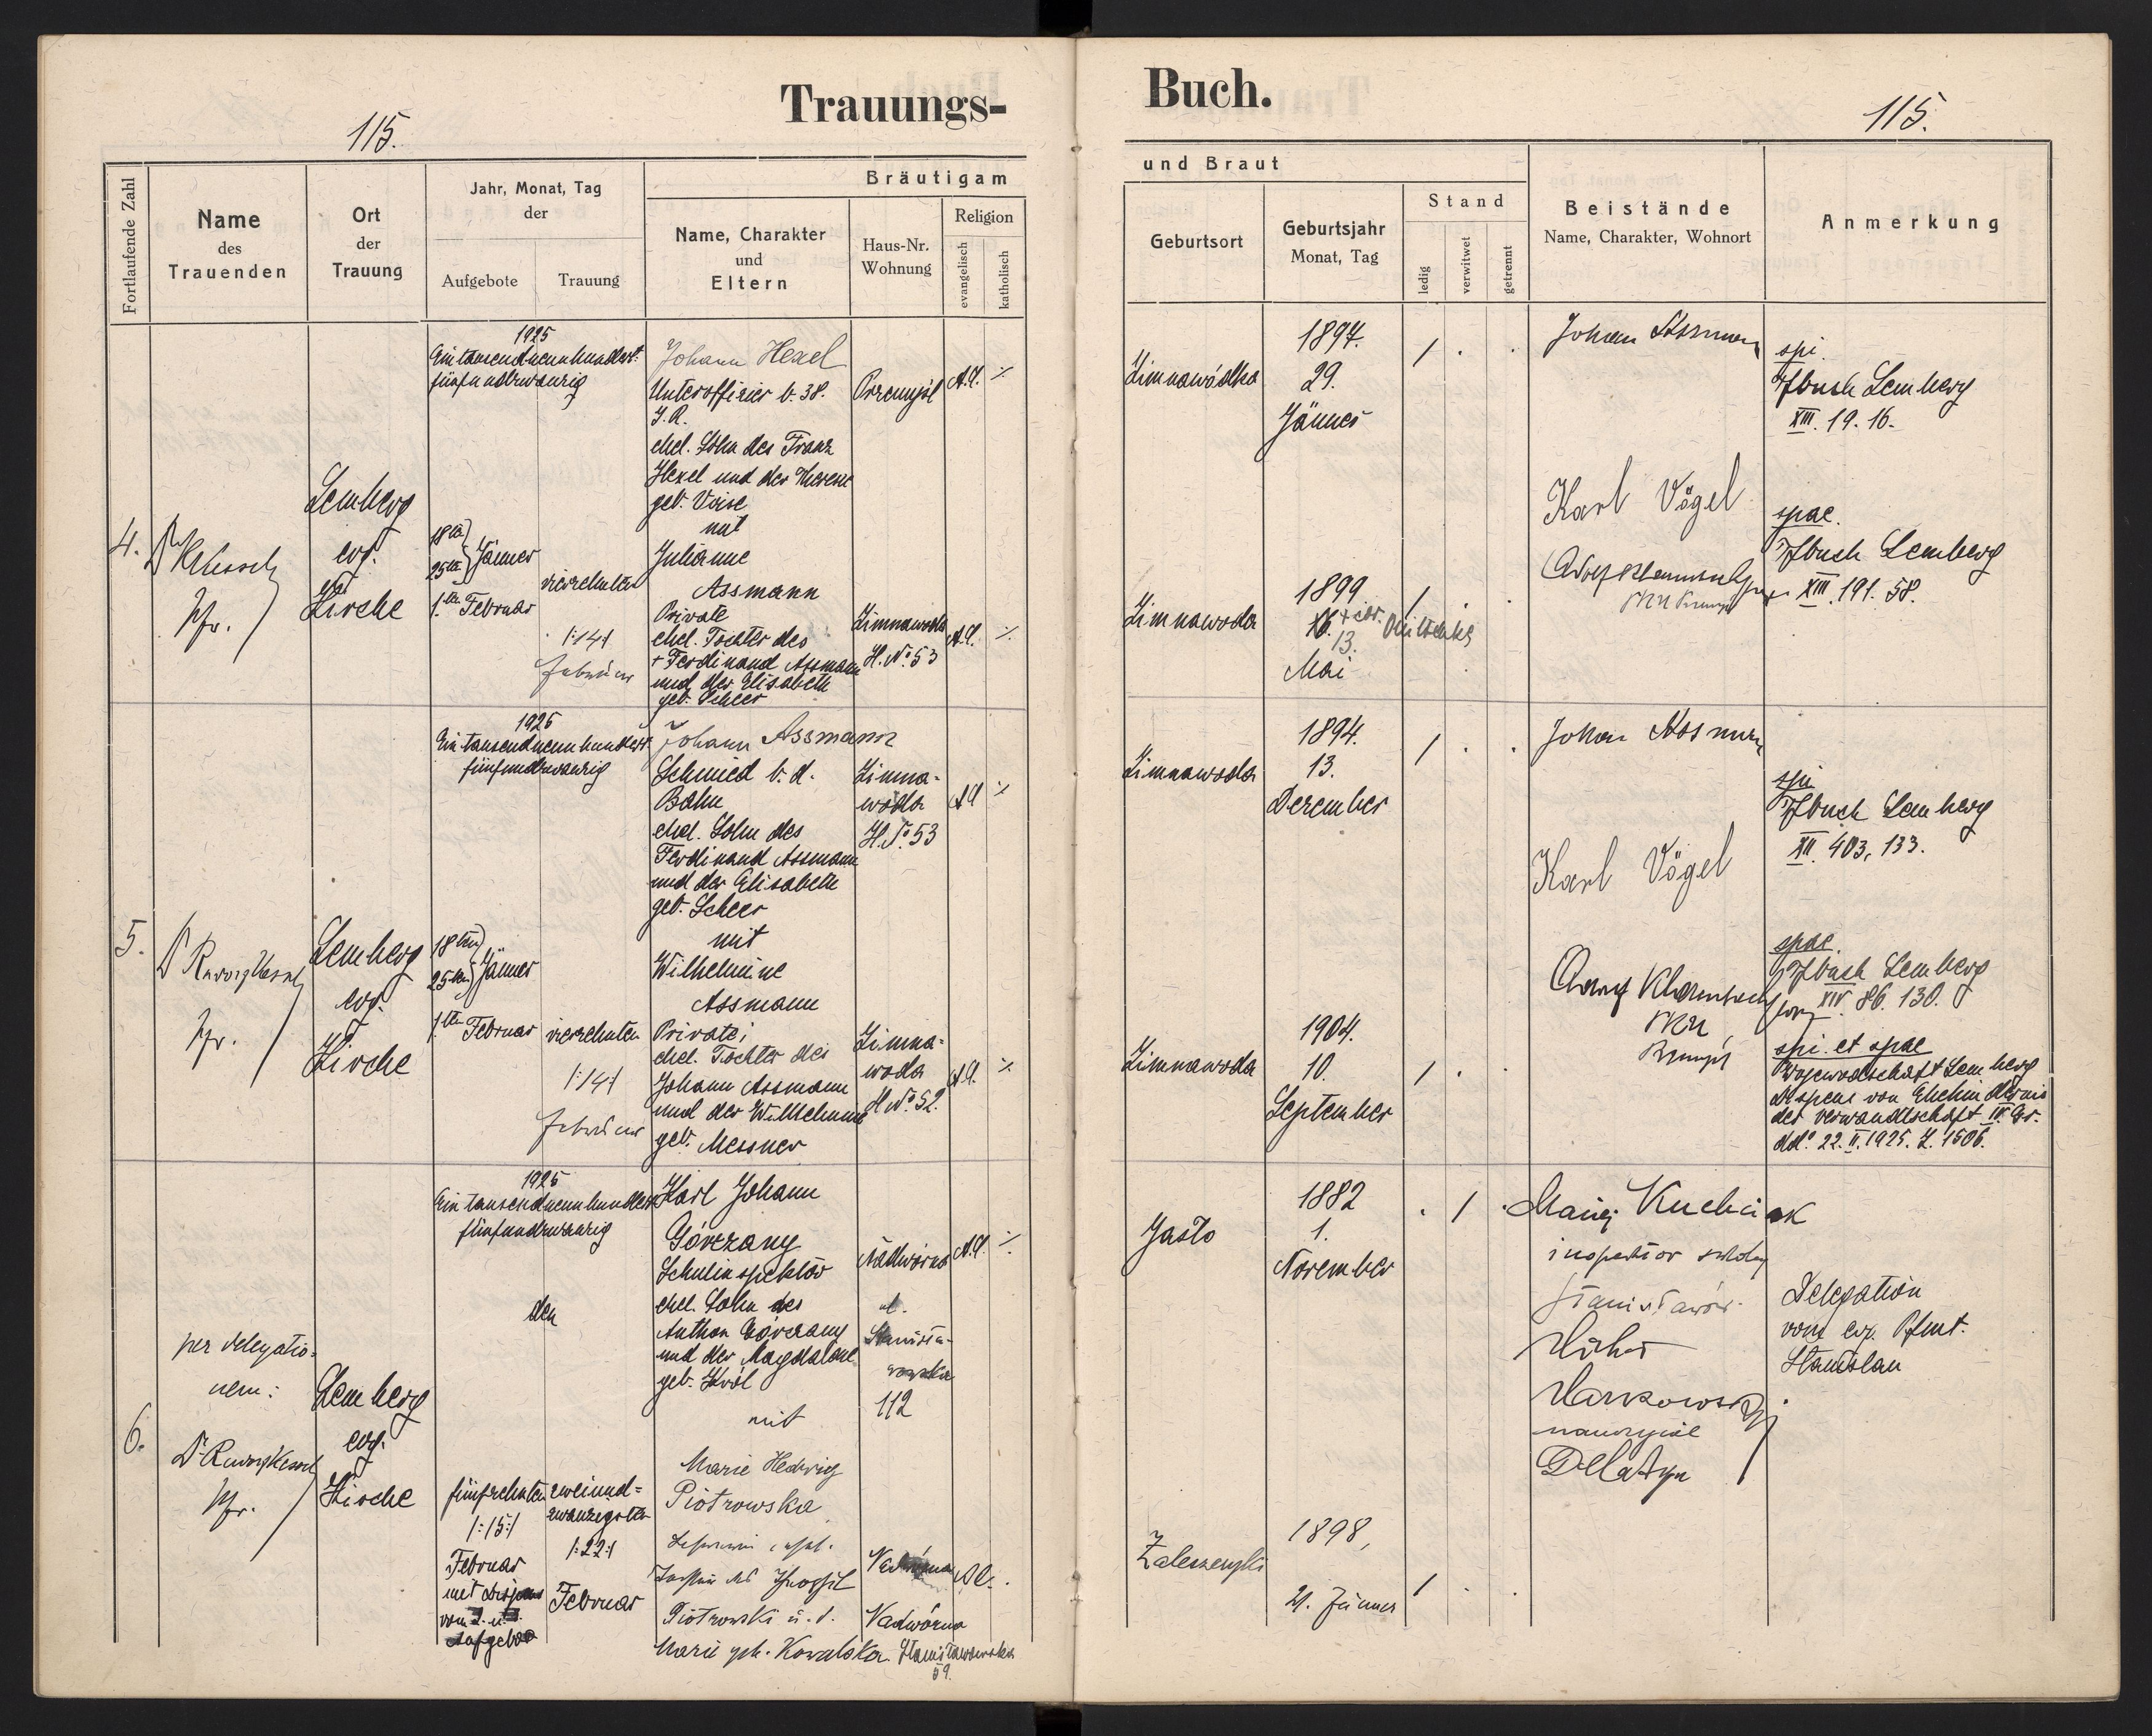 Trauungs-
Buch.
115.
115.
Fortlaufende Zahl
Name
des
Trauenden
Ort
der
Trauung
Jahr, Monat, Tag
der
Aufgebote
Trauung
Bräutigam
Name, Charakter
und
Eltern
Haus-Nr.
Wohnung
Religion
evangelisch
katholisch
und Braut
Geburtsort
Geburtsjahr
Monat, Tag
Stand
ledig
verwitwet
getrennt
Beistände
Name, Charakter, Wohnort
Anmerkung
4.
Dr Kesselring
Pfr.
Lemberg
evg.
Kirche
1925
Eintausendneunhundert-
fünfundzwanzig
18ten
25ten Jänner
1.ten Februar
vierzehnten
/:14:/
Februar
Johann Hexel
Unteroffizier b. 38.
I.R.
ehel. Sohn des Franz
Hexel und der Therese
geb. Voise
mit
Julianne
Assmann
Private
ehel. Tochter des
+ Ferdinand Assmann
und der Elisabeth
geb. Scheer
Przemysl
A.C.
Zimnawoda
H. No. 53
A.C.
Zimnawódka
1897.
29.
Jänner
/ . .
Zimnawoda
1899
13.
Mai
/ . .
Johan Assmann
Karl Vögel
spi.
Tfbuch Lemberg
XIII. 19. 16.
spae.
Tfbuch Lemberg
XIII. 191. 58.
5.
Pfr.
Lemberg
evg.
Kirche
1925
Eintausendneunhundert-
fünfundzwanzig
18ten
25ten Jänner
1.ten Februar
vierzehnten
/:14:/
Februar
Johann Assmann
Schmied b. d.
Bahn
ehel. Sohn des
Ferdinand Assmann
und der Elisabeth
geb. Scheer
mit
Wilhelmine
Assmann
Private;
ehel. Tochter des
Johann Assmann
und der Wilhelmine
geb. Messner
Zimna-
woda
H. No. 53
A.C.
Zimna-
woda
H No. 52.
A.C.
Zimnawoda
1894.
13.
Dezember
/ . .
Zimnawoda
1904.
10.
September
/ .
Johan Assmann
Karl Vögel
spi
Tfbuch Lemberg
XII. 403, 133.
spae.
Tfbuch Lemberg
XIV. 86. 130.
spi. et spae
Wojewodschaft Lemberg
Dispens von Ehehindernis
der Verwandtschaft IV. Gr.
dd.o 22. II. 1925. Z. 1506.
6.
per delegatio-
nem:
Pfr.
Lemberg
evg.
Kirche
1925
Eintausendneunhundert
fünfundzwanzig
den
fünfzehnten
/:15:/
Februar
mit Dispens
Aufgebot
zweiund-
zwanzigsten
/:22:/
Februar
Karl Johann
Góvezany
Schulinspektor
ehel. Sohn des
Anthon Góvezany
und der Magdalene
geb. Król
mit
Marie Hedwig
Piotrowska
Piotrowski u. d.
Marie geb. Kowalska
Nadwórna
112
A.C.
Nadwórna
Stanisławowska
59.
Jasło
1882
1.
November
. / .
1898,
21. Jänner
/ . .
Maciej Kuchciak
inspektor szkolny
Stanisławów.
Delatyn
Delegation
vom evg. Pfmt.
Stanislau